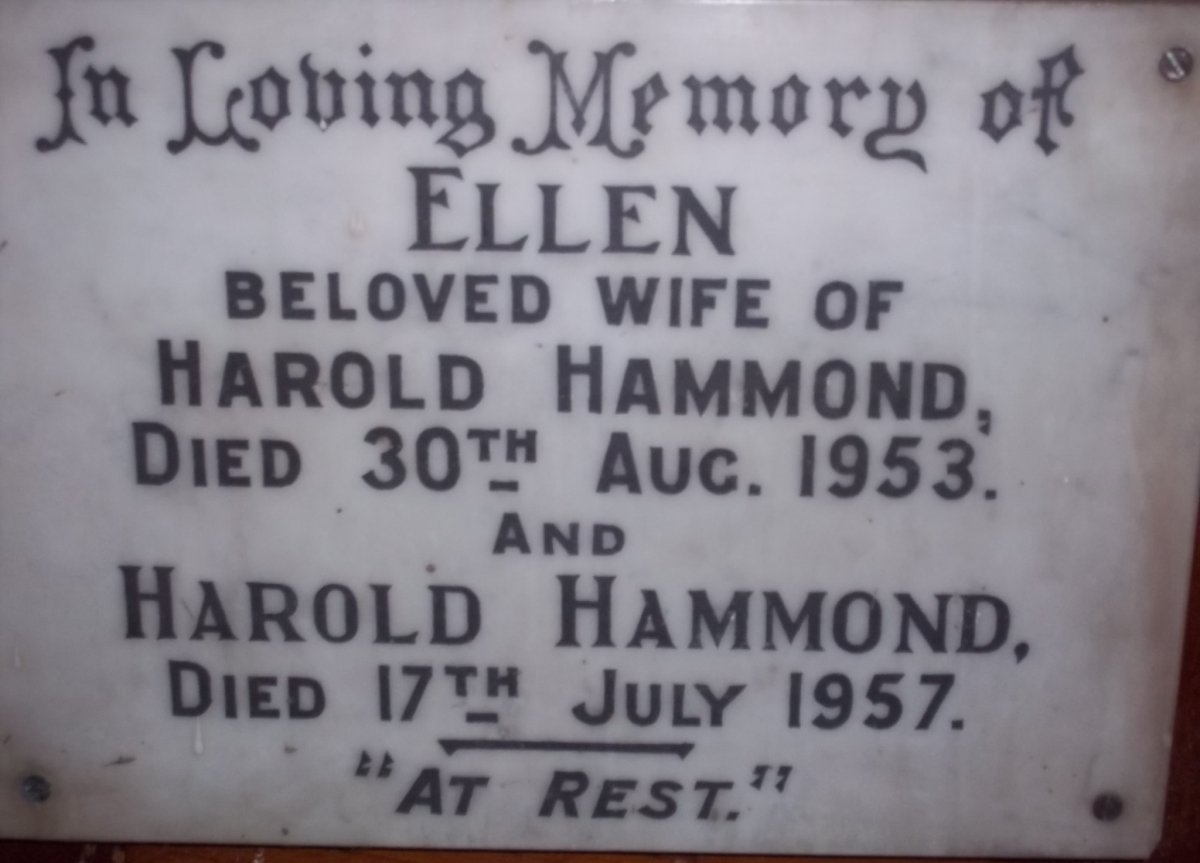 In Loving Memory of
ELLEN
BELOVED WIFE OF
HAROLD HAMMOND,
DIED 30TH AUG. 1953.
AND
HAROLD HAMMOND,
DIED 17TH JULY 1957.
"AT REST."